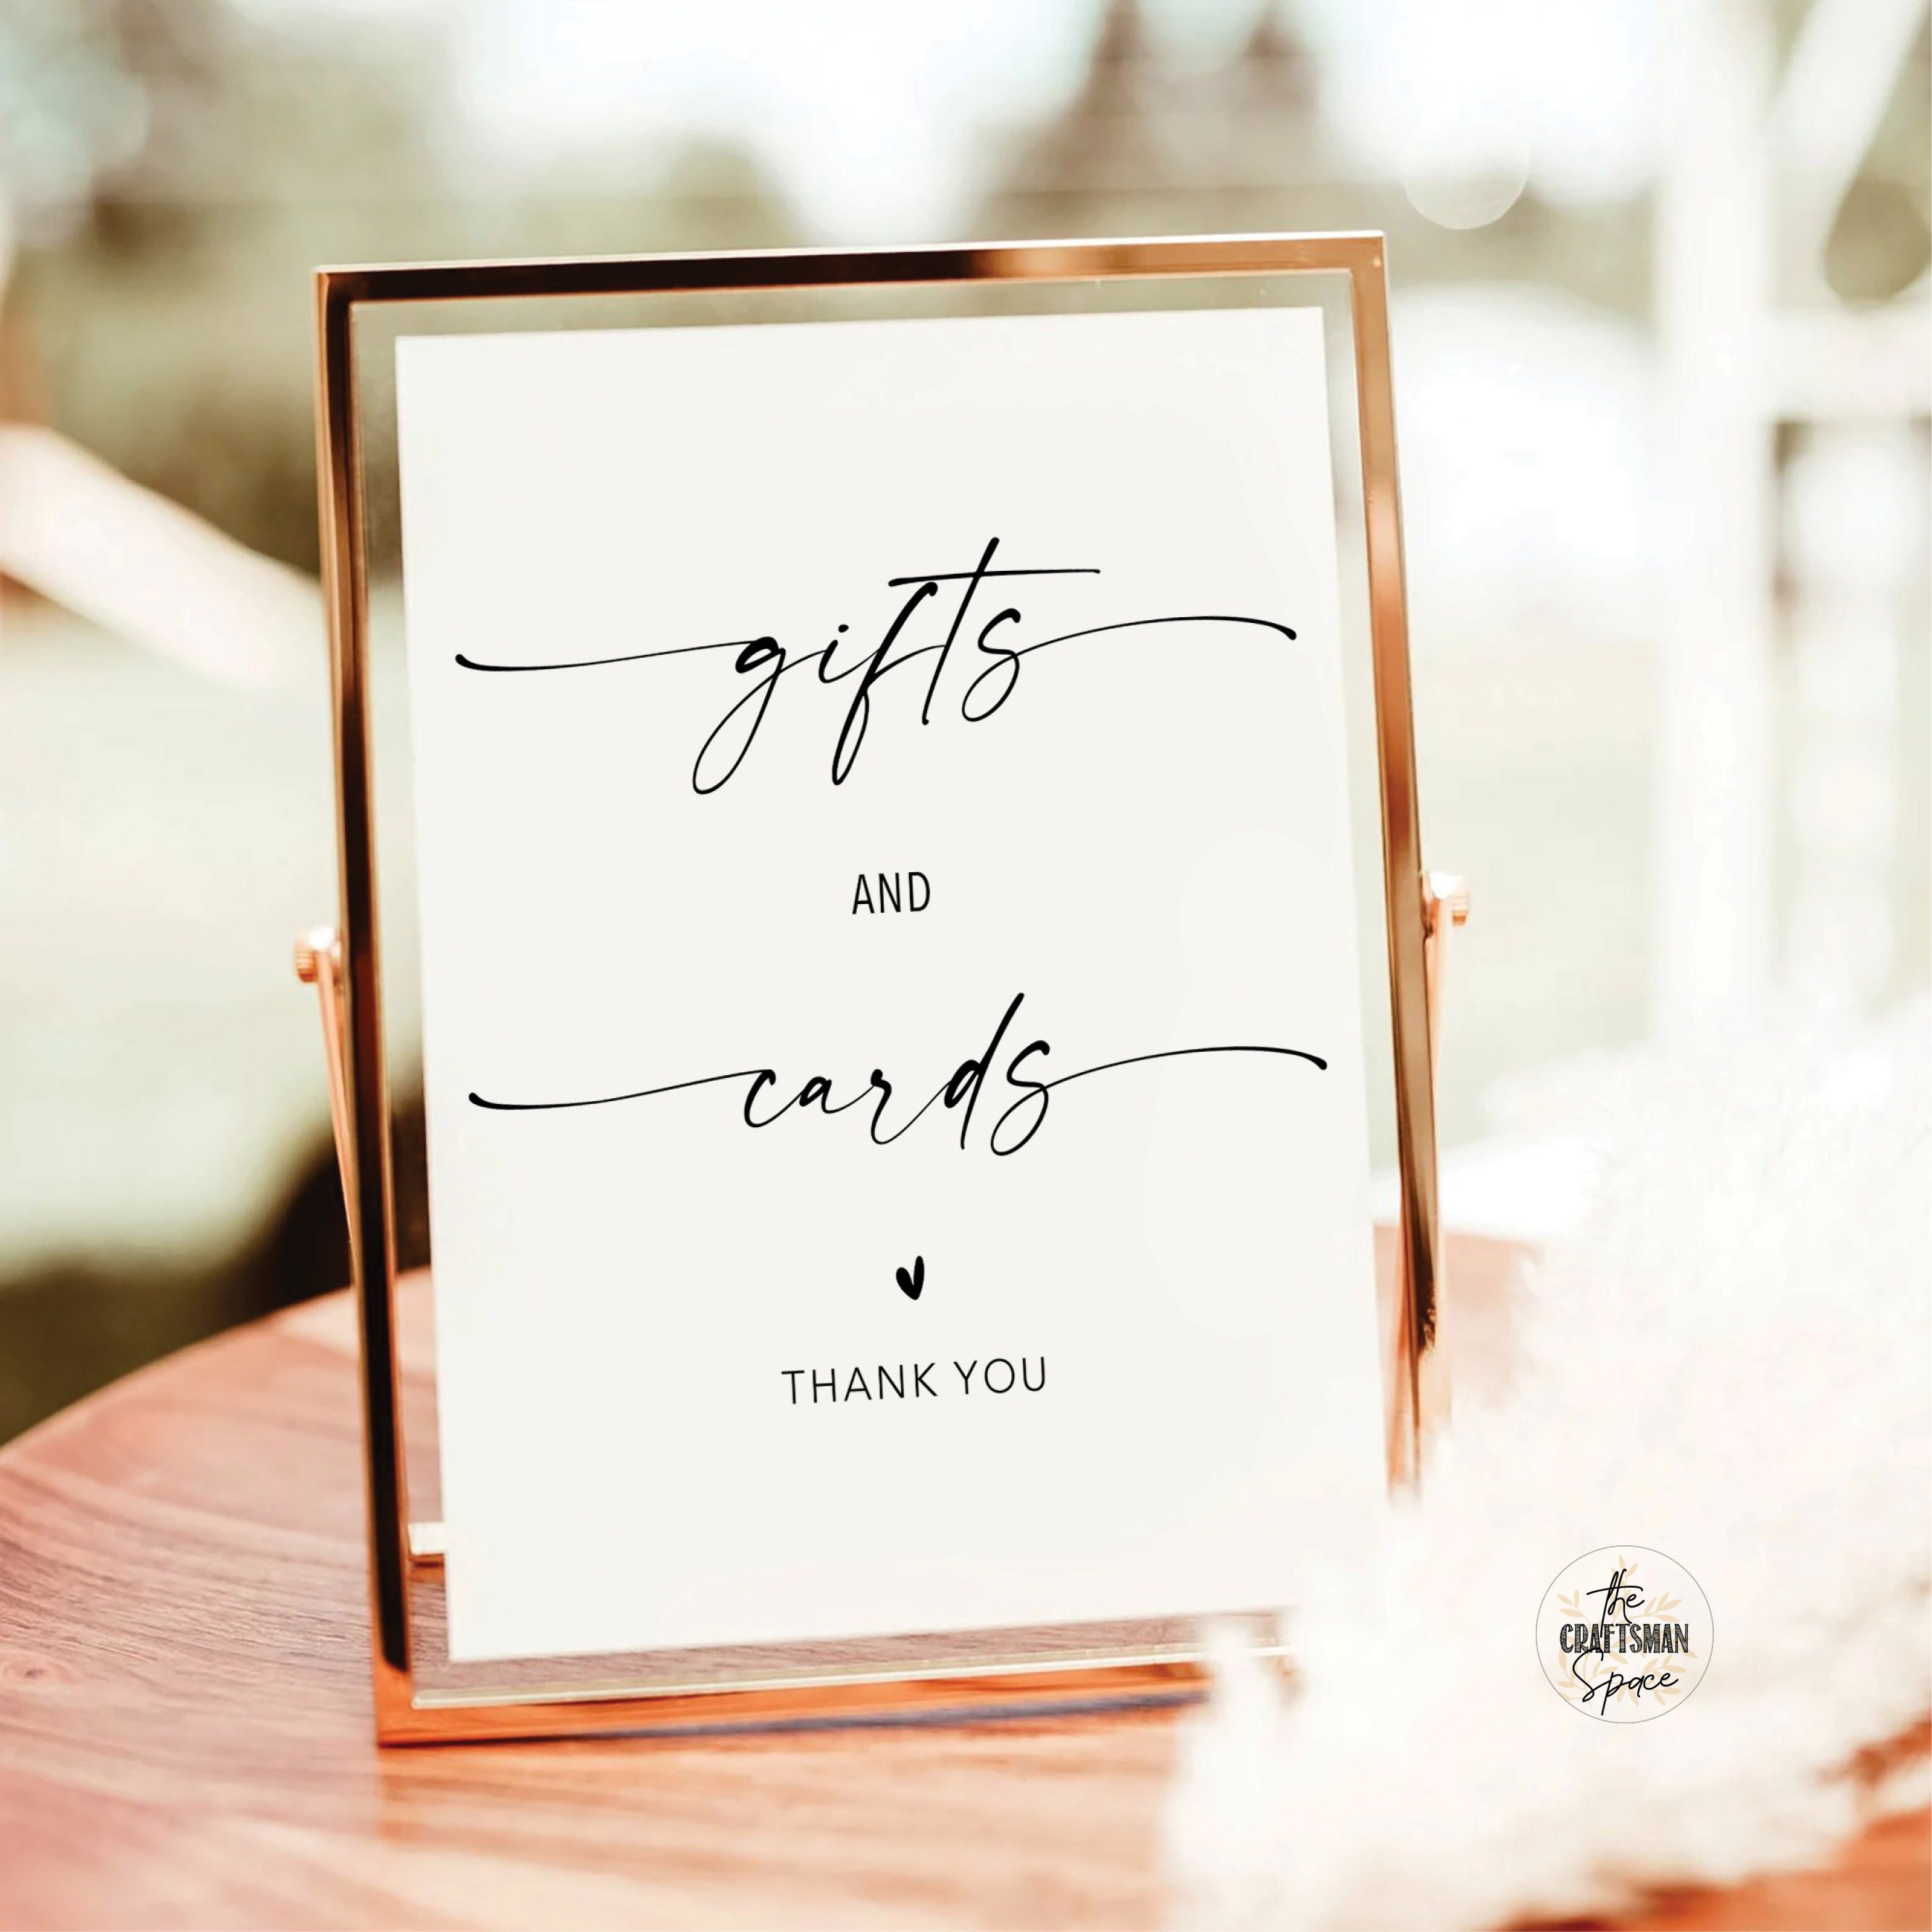 gifts
AND
cards
THANK YOU
the
CRAFTSMAN
Space